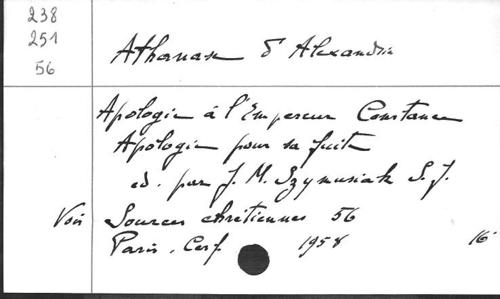 238
251
56
Athanase d'Alexandrie
Apologie à l'Empereur Constance
Apologie pour sa fuite
ed. par J. M. Szymusiak S. J.
Voir Sources chrétiennes 56
Paris. Cerf 1958 16°